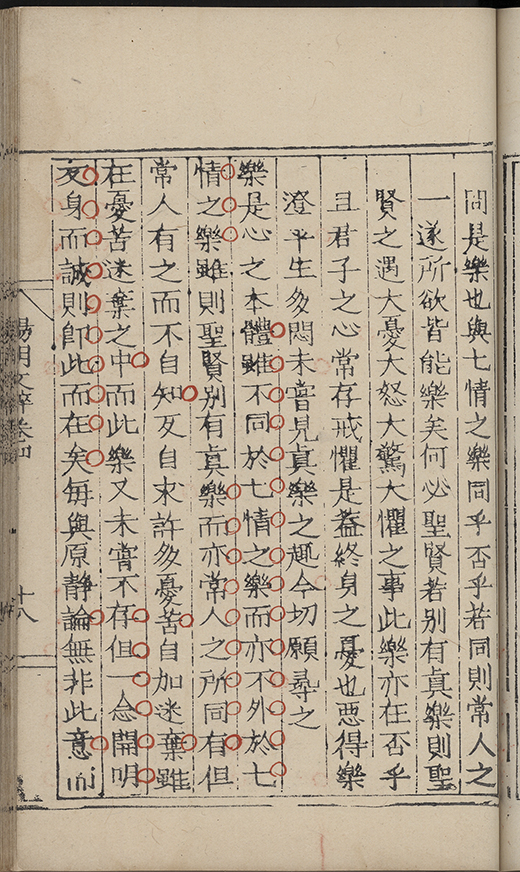 問是樂也與七情之樂同乎否乎若同則常人之
一遂所欲皆能樂矣何必聖賢若別有真樂則聖
賢之遇大憂大怒大驚大懼之事此樂亦在否乎
且君子之心常存戒懼是葢終身之憂也惡得樂
澄平生多悶未嘗見真樂之趣今切願尋之
樂是心之本體雖不同於七情之樂而亦不外於七
情之樂雖則聖賢別有真樂而亦常人之所同有但
常人有之而不自知反自求許多憂苦自加迷棄雖
在憂苦迷棄之中而此樂又未嘗不存但一念開明
反身而誠則卽此而在矣每與原靜論無非此意而
陽明文粹卷四
十八